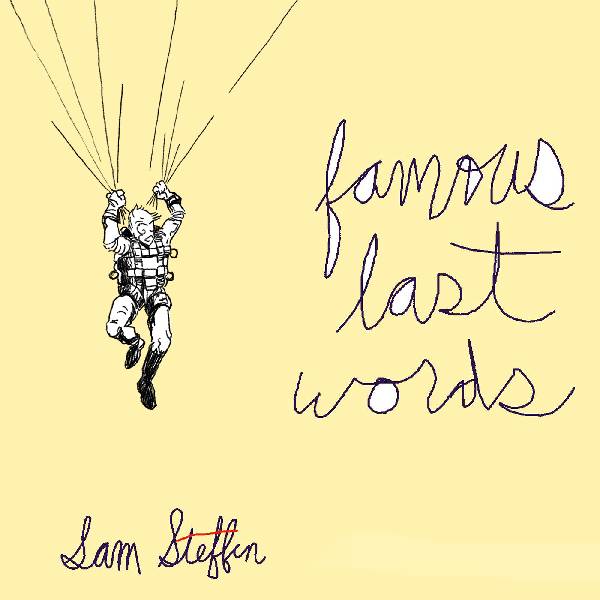 famous
last
words
Sam Steffin